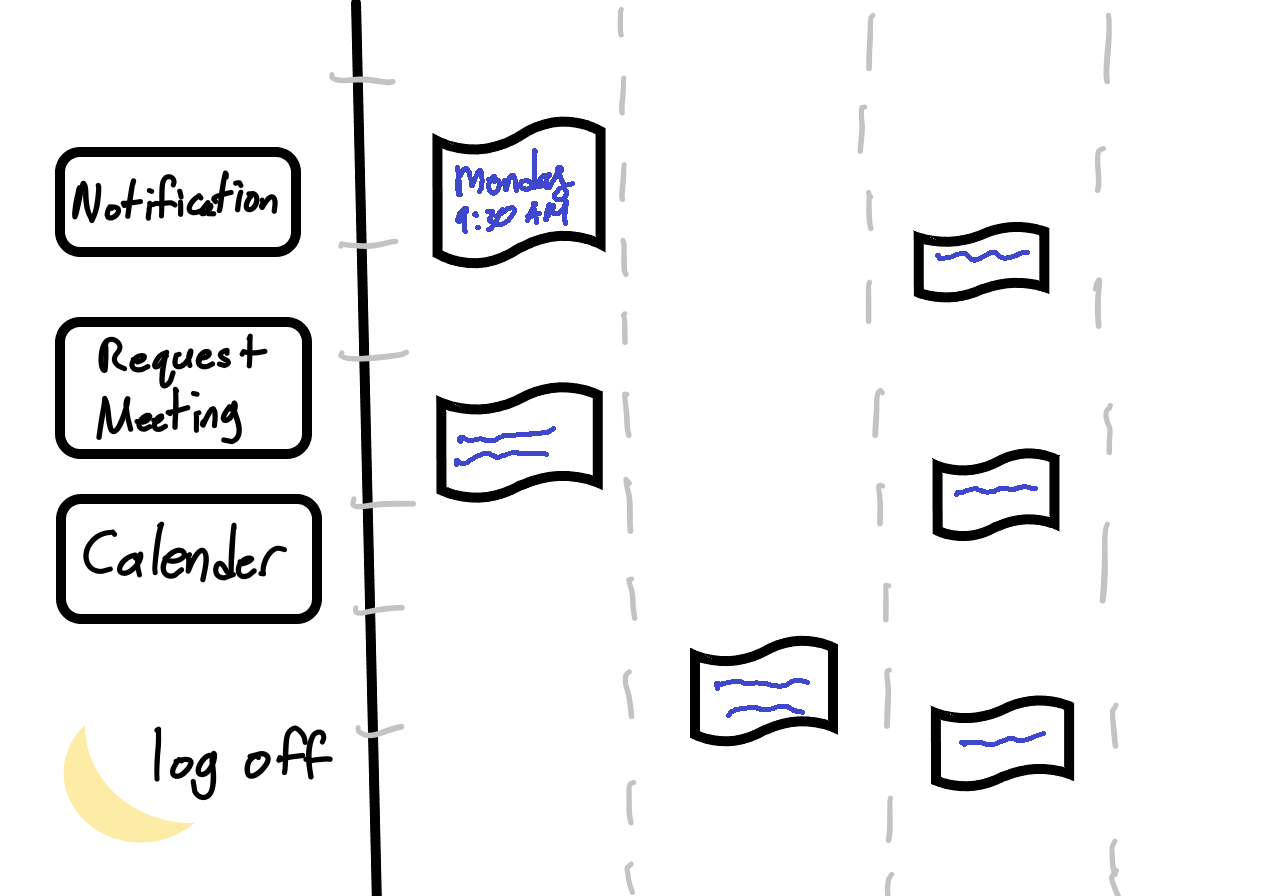 Notification
Request
Meeting
Calender
log off
Monday
9:30 AM